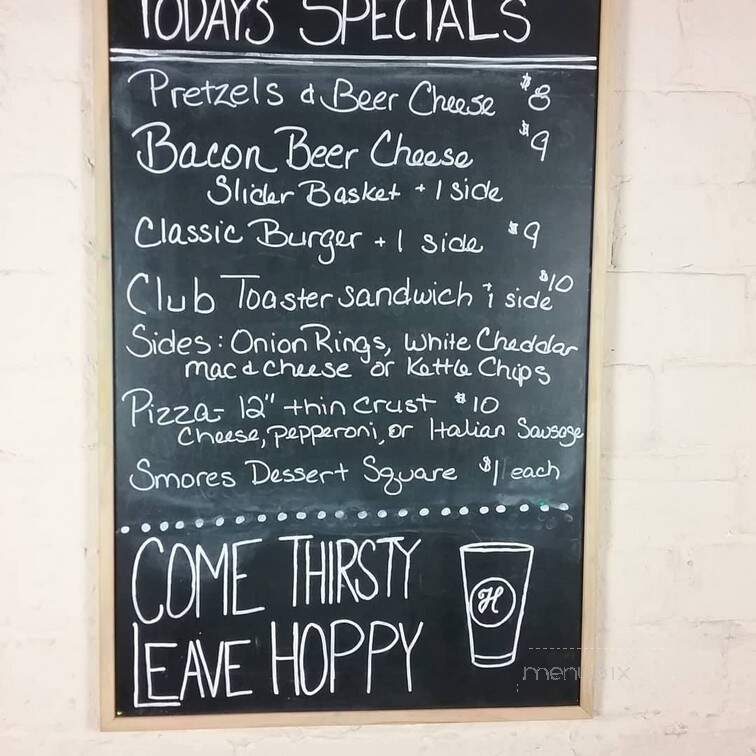 TODAYS SPECIALS
Pretzels & Beer Cheese $8
Bacon Beer Cheese $9
Slider Basket + 1 side
Classic Burger + 1 side $9
Club Toaster sandwich + 1 side $10
Sides: Onion Rings, White Cheddar
mac & cheese or Kettle Chips
Pizza- 12" thin crust $10
Cheese, pepperoni, or Italian Sausage
Smores Dessert Square $1 each
COME THIRSTY
LEAVE HOPPY
H
menupix